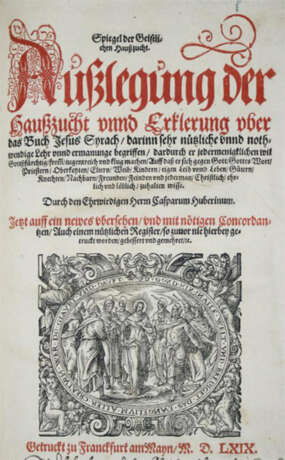 Spiegel der Geistli-
chen Haußzucht.
Außlegung der
Haußzucht vnnd Erklerung vber
das Buch Jesus Syrach / darinn sehr nützliche vnnd noth-
wendige Lehr vnnd ermanunge begriffen / dardurch er jedermenigklichen wil
Gottsförchtig / from̃ / tugentreich vnd klug machen / Auff daß er sich gegen Gott / Gottes Wort /
Priestern / Oberkeyten / Eltern / Weib / Kindern / eigen Leib vnnd Leben / Gütern /
Knechten / Nachbawrn / Freunden / Feinden vnd jederman / Christlich / ehr-
lich vnd löblich / zuhalten wisse.
Durch den Ehrwirdigen Herrn Casparum Huberinum.
Jetzt auff ein newes vbersehen / vnd mit nötigen Concordan-
tzen / Auch einem nützlichen Register / so zuuor nie hierbey ge-
truckt worden / gebessert vnd gemehret / ꝛc.
Getruckt zu Franckfurt am Mayn / M. D. LXIX.